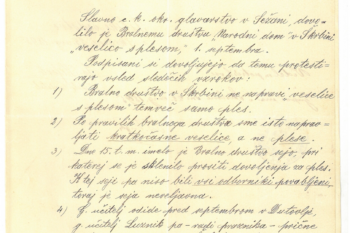 Slavno c. k. okr. glavarstvo v Sežani dovo-
lilo je Bralnemu društvu „Narodni dom" v Skrbini
„veselico s plesom", 1. septembra.
Podpisani si dovoljujejo do temu protesti-
rajo vsled sledečih vzrokov:
1) Bralno društvo v Skrbini ne napravi „veselice
s plesom" temveč samo ples.
2) Po pravilih bralnega društva sme isto naprav-
ljati kratkočasne veselice a ne plese.
3) Dne 15. t. m. imelo je Bralno društvo sejo, pri
kateri je se sklenilo prositi dovoljenja za ples.
K tej seji pa niso bili vsi odborniki povabljeni,
torej je seja neveljavna.
4) G. učitelj odide pred septembrom v Dutovlje,
g. učitelj pa radi praznika